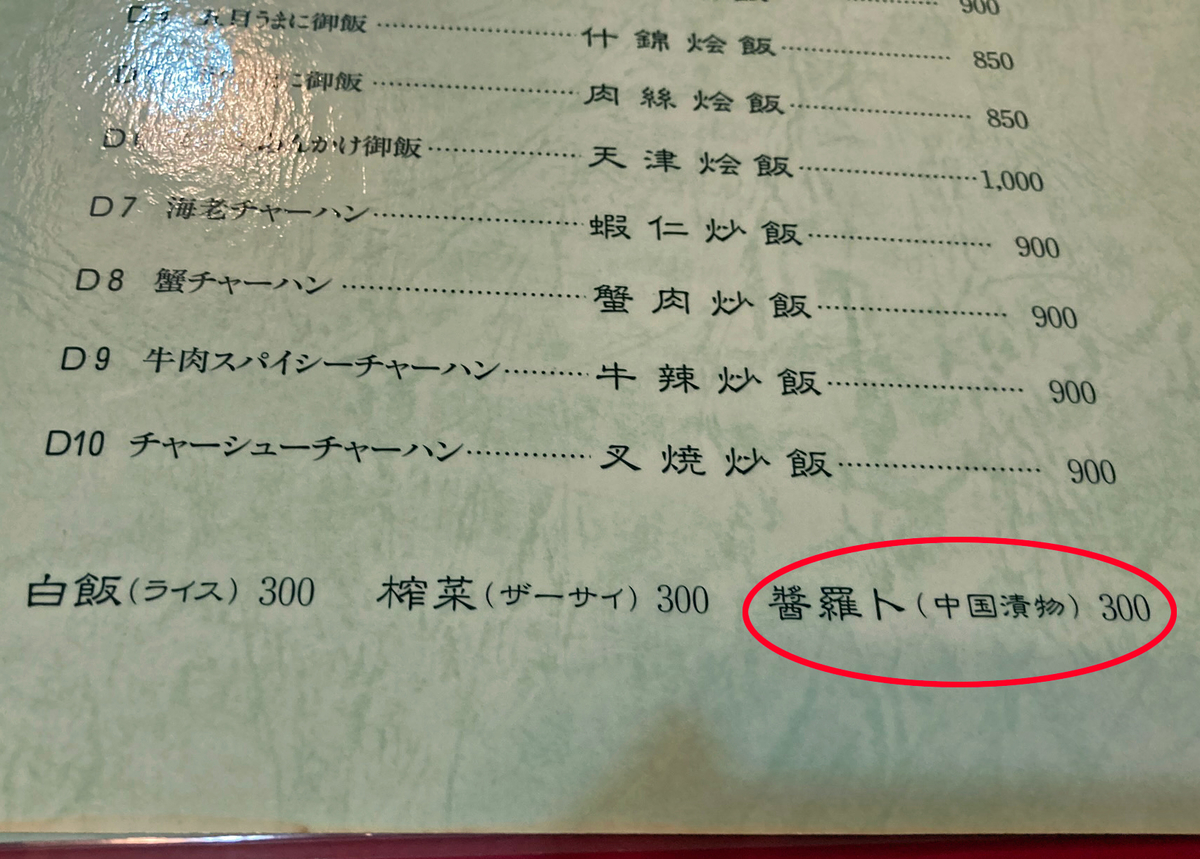 900
うまに御飯 什錦烩飯 850
に御飯 肉絲烩飯 850
んかけ御飯 天津烩飯 1,000
D7 海老チャーハン 蝦仁炒飯 900
D8 蟹チャーハン 蟹肉炒飯 900
D9 牛肉スパイシーチャーハン 牛辣炒飯 900
D10 チャーシューチャーハン 叉焼炒飯 900
白飯(ライス) 300 榨菜(ザーサイ) 300 醬羅卜(中国漬物) 300